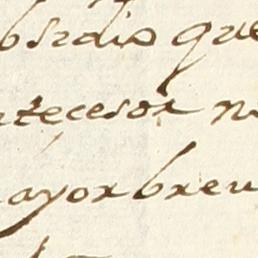 bsidio que
ntecesor n
ayor breu